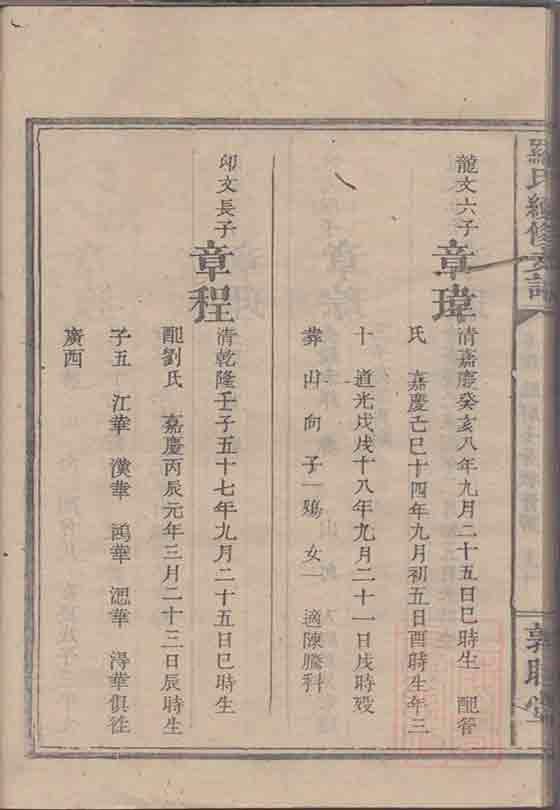 羅氏續修支譜
龍文六子
章瑋
清嘉慶癸亥八年九月二十五日巳時生 配管
氏 嘉慶己巳十四年九月初五日酉時生年三
十 道光戊戌十八年九月二十一日戌時歿
葬 山 向 子一鵕 女一 適陳騰科
印文長子
章程
清乾隆壬子五十七年九月二十五日巳時生
配劉氏 嘉慶丙辰元年三月二十三日辰時生
子五 江華 漢華 鴻華 澀華 潯華俱徃
廣西
敦睦堂